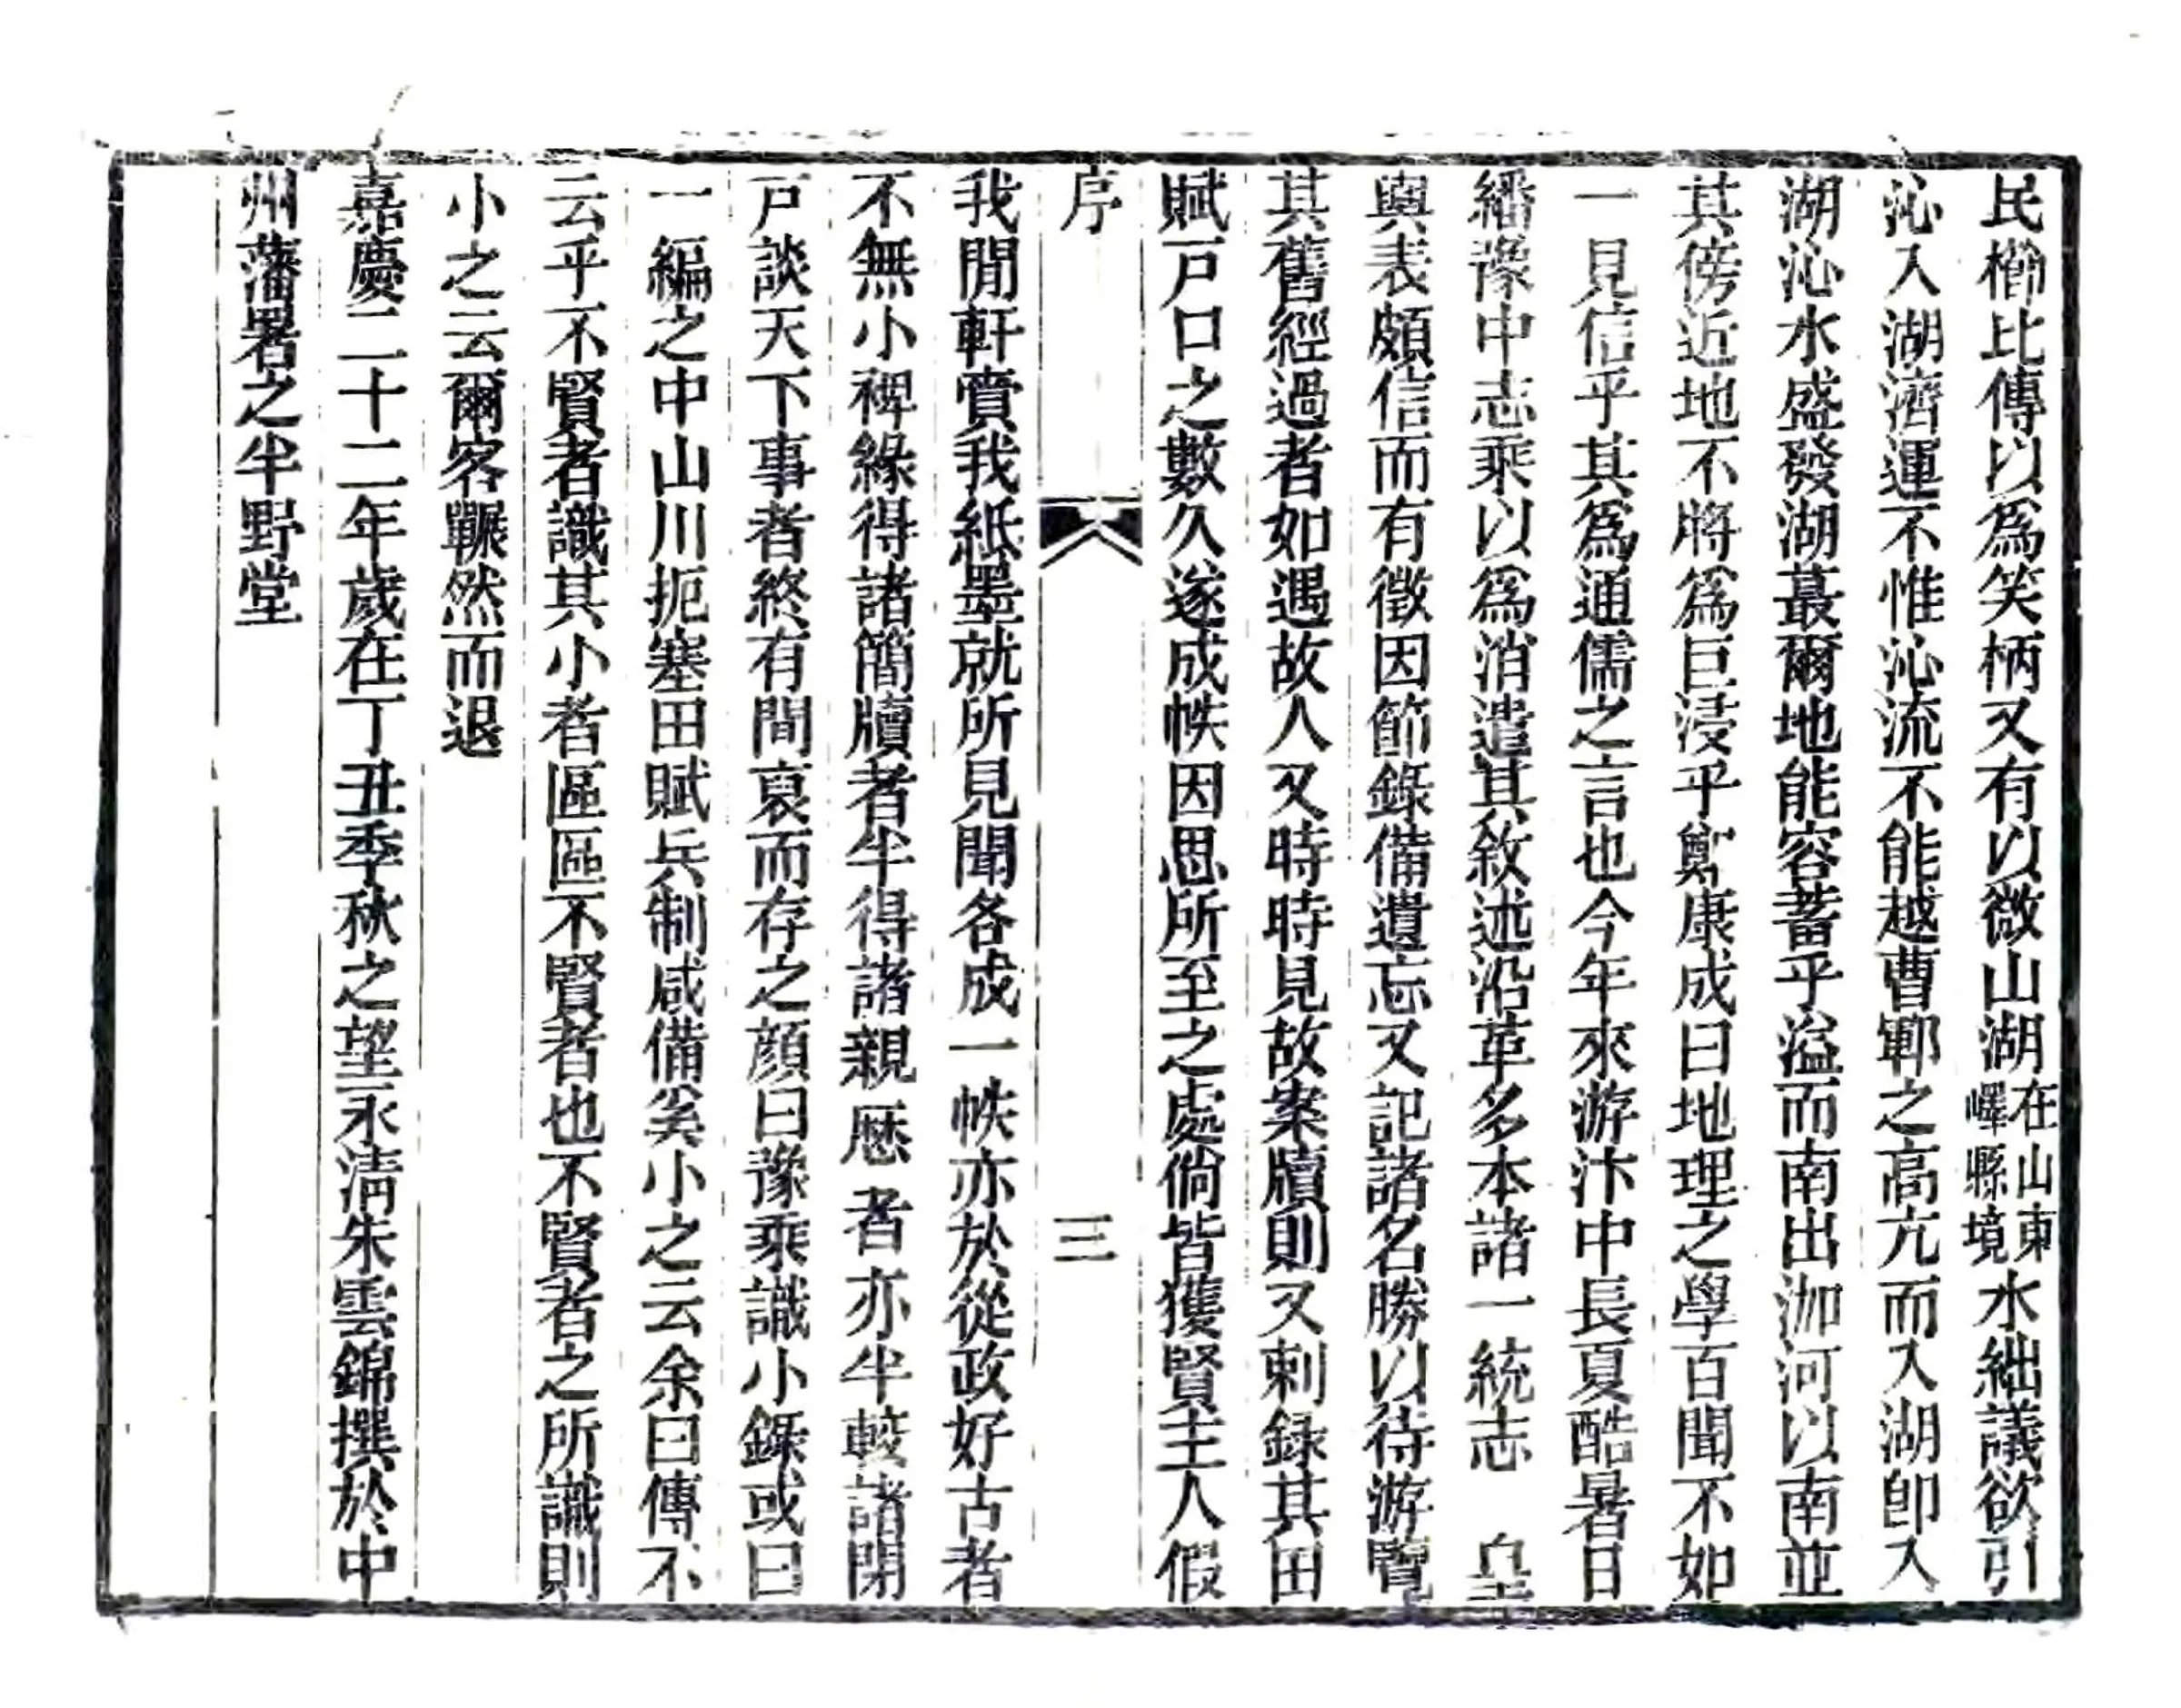 民櫛比傳以爲笑柄又有以微山湖在山東嶧縣境水絀議欲引
沁入湖濟運不惟沁流不能越曹鄆之高亢而入湖卽入
湖沁水盛發湖蕞爾地能容蓄乎溢而南出泇河以南並
其傍近地不將爲巨浸乎鄭康成曰地理之學百聞不如
一見信乎其爲通儒之言也今年來游汴中長夏酷暑日
繙豫中志乘以爲消遣其敘述沿革多本諸一統志　皇
輿表頗信而有徵因節錄備遺忘又記諸名勝以待游覽
其舊經過者如遇故人又時時見故案牘則又刺録其田
賦戸口之數久遂成帙因思所至之處倘皆獲賢主人假
序　三
我閒軒賣我紙墨就所見聞各成一帙亦於從政好古者
不無小裨緣得諸簡牘者半得諸親歷者亦半較諸閉
戸談天下事者終有間裒而存之顔曰豫乘識小錄或曰
一編之中山川扼塞田賦兵制咸備奚小之云余曰傳不
云乎不賢者識其小者區區不賢者也不賢者之所識則
小之云爾客囅然而退
嘉慶二十二年歲在丁丑季秋之望永淸朱雲錦撰於中
州藩署之半野堂